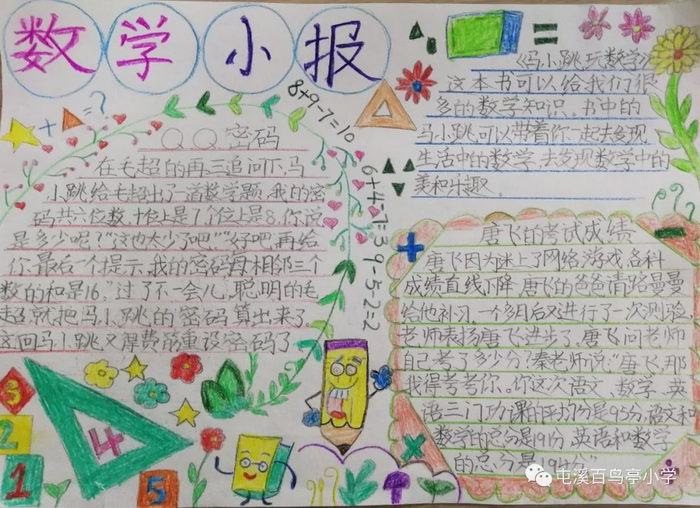 数学小报
8+9-7=10
《马小跳玩数学》
这本书可以给我们很
多的数学知识。书中的
马小跳可以带着你一起去发现
生活中的数学,去发现数学中的
美和乐趣。
+ = ?
=
QQ密码
在毛超的再三追问下,马
小跳给毛超出了一道数学题,我的密
码共六位数,十位上是7,个位上是8,你说
是多少呢?”“这也太少了吧!”“好吧,再给
你最后一个提示,我的密码每相邻三个
数的和是16。”过了不一会儿,聪明的毛
超就把马小跳的密码算出来了,
这回马小跳又得费劲重设密码了
6+4-7=3
9-5-2=2
唐飞的考试成绩
唐飞因为迷上了网络游戏,各科
成绩直线下降,唐飞的爸爸请路曼曼
给他补习,一个多月后又进行了一次测验
老师表扬唐飞进步了,唐飞问老师
自己考了多少分?秦老师说:“唐飞,那
我得考考你,你这次语文、数学、英
语三门功课的平均分是95分,语文和
数学的总分是191分,英语和数学
的总分是
+
-
×
3
2
1
4
5
屯溪百鸟亭小学